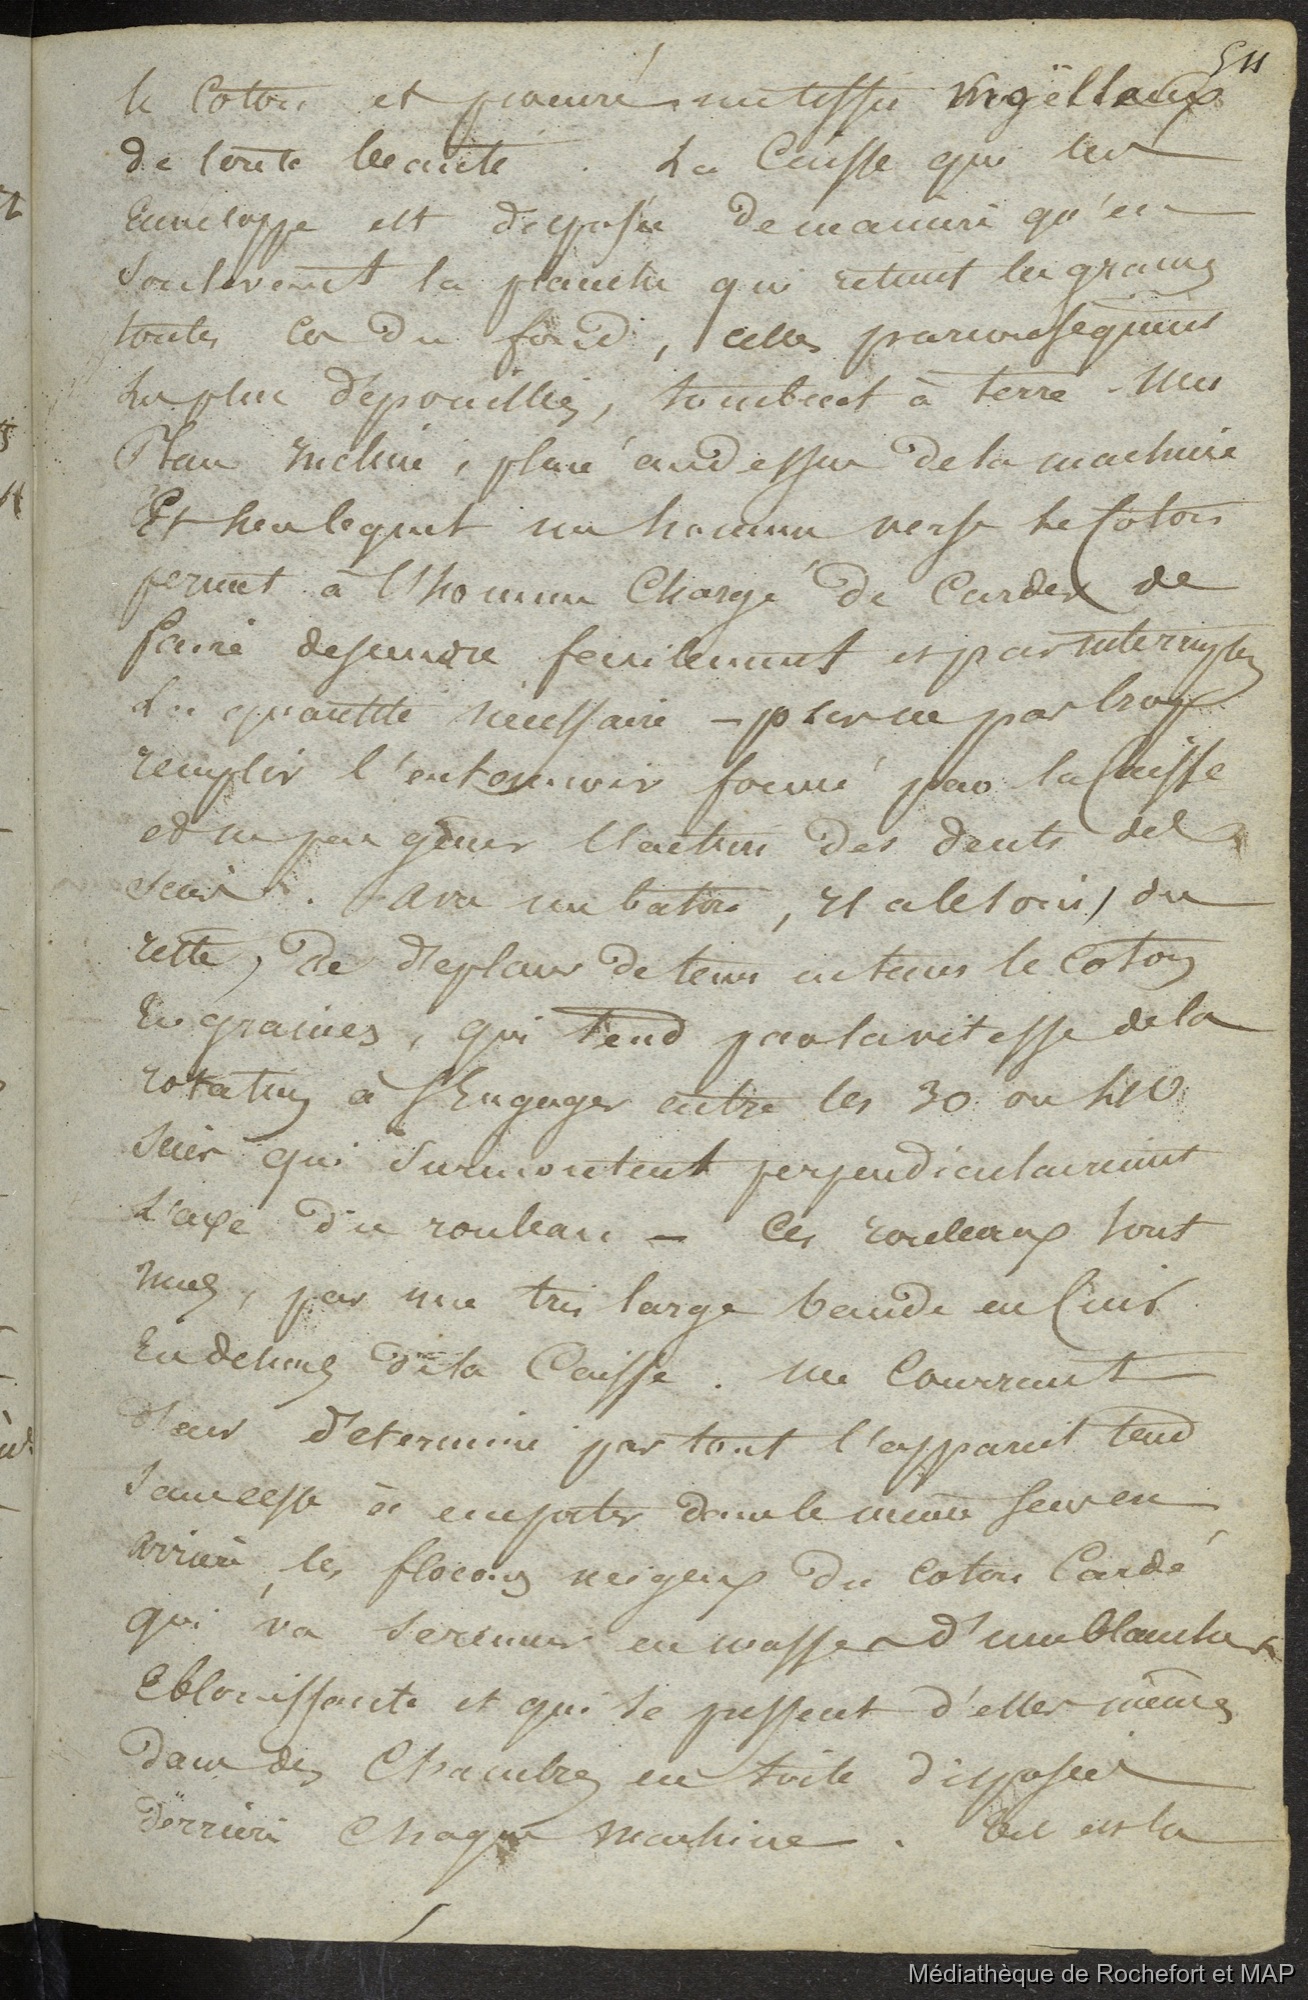 511
le Coton et procure un tissu moëlleux
de toute beauté. La Caisse qui les
Enveloppe est disposée de maniere qu'en
Soulevant la planche qui retient les graines
toutes ces du fond, celles parconséquent
Les plus dépouillées, tombent à terre - Un
Plan incliné, placé audessus de la machine
Et sur lequel un homme verse le Coton
permet à l'homme Chargé de Carder de
faire descendre facilement et par interruption
La quantité nécessaire - pour ne pas trop
remplir l'entonnoir formé par la Caisse
et ne pas gêner l'action des dents de
scies. Avec un baton, il a le soin, du
reste, de déplacer de tems en tems le Coton
En graines, qui tend par la vitesse de la
rotation à S'Engager entre les 30 ou
Scies qui Surmontent perpendiculairement
L'axe du rouleau - Ces rouleaux sont
mus, par une très large bande en Cuir
En dehors de la Caisse. un Courrant
d'air déterminé par tout l'appareil tend
Sans cesse à emporter dans le même sens en
arriere, les flocons neigeux du coton Cardé
qui va se reunir en masses d'une blancheur
Eblouissante et qui se pressent d'elles mêmes
dans des Chambres en toile disposées
derriere Chaque machine. tel est la
Médiathèque de Rochefort et MAP